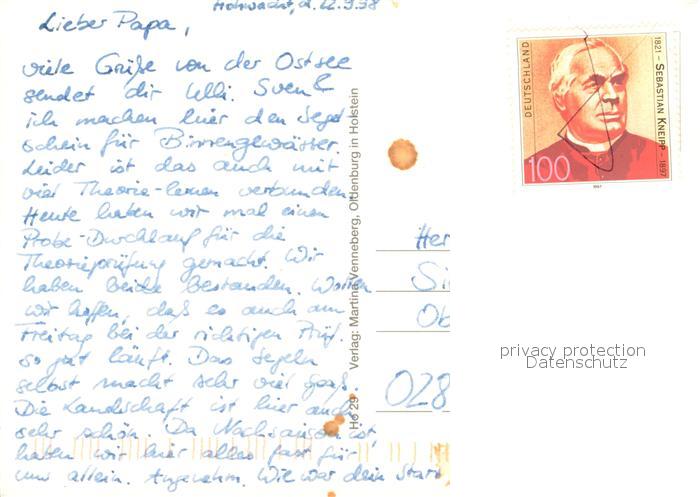 Hohwacht, d. 22.9.98
Lieber Papa,
viele Grüße von der Ostsee
sendet dir Ulli. Sven &
ich machen hier den Segel
schein für Binnengewässer.
Leider ist das auch mit
viel Theorie-lernen verbunden.
Heute haben wir mal einen
Probe-Durchlauf für die
Theorieprüfung gemacht. Wir
haben beide bestanden. Wollen
wir hoffen, daß es auch am
Freitag bei der richtigen Prüf.
so gut läuft. Das Segeln
selbst macht sehr viel Spaß.
Die Landschaft ist hier auch
sehr schön. Da Nachsaison ist,
haben wir hier alles fast für
uns allein. Angenehm. Wie war dein Start
Ho 29 Verlag: Martina Venneberg, Oldenburg in Holstein
DEUTSCHLAND
100
1821 – SEBASTIAN KNEIPP – 1897
1997
Her
Si
Ob
028
privacy protection
Datenschutz